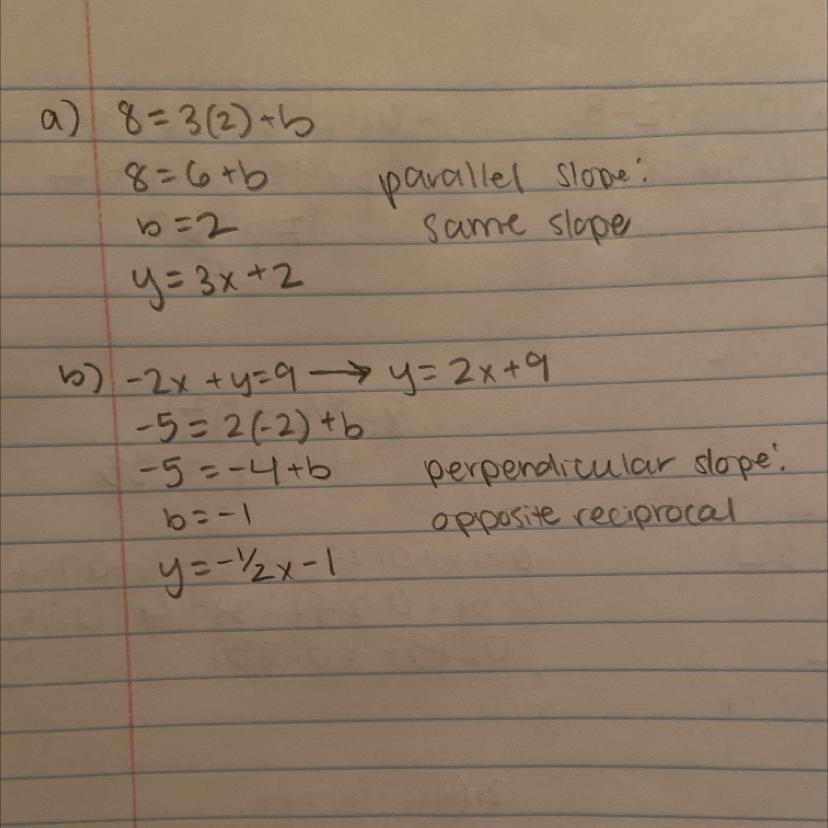 a) 8=3(2)+b
8=6+b
parallel slope:
b=2
same slope
y=3x+2
b) -2x+y=9 → y=2x+9
-5=2(-2)+b
-5=-4+b
perpendicular slope:
b=-1
opposite reciprocal
y=-1/2x-1